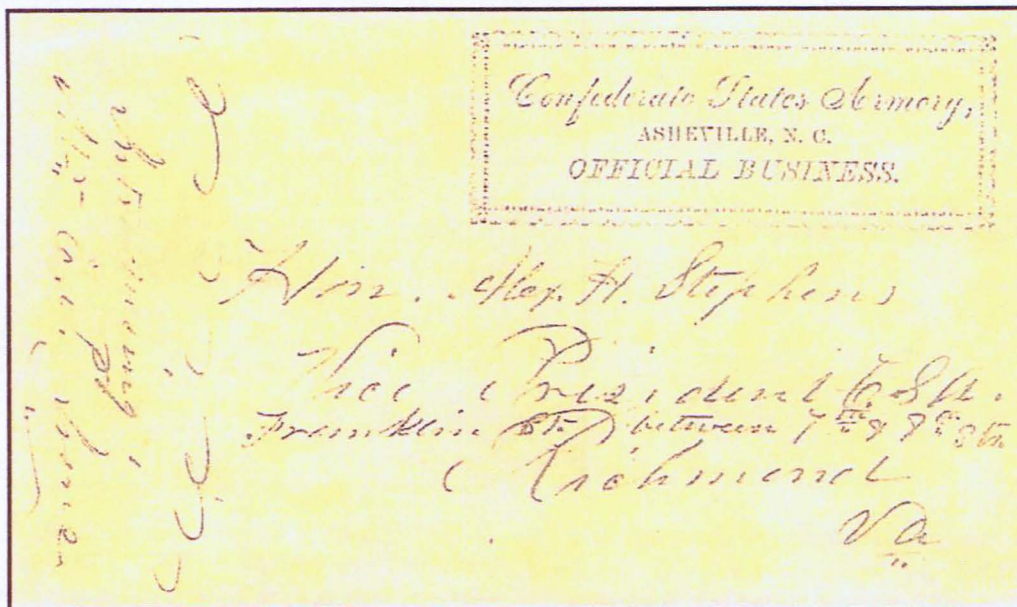 Confederate States Armory,
ASHEVILLE, N. C.
OFFICIAL BUSINESS.
Hon. Alex. H. Stephens
Vice President C.S.A.
Franklin St. between 7th & 8th Sts
Richmond
Va